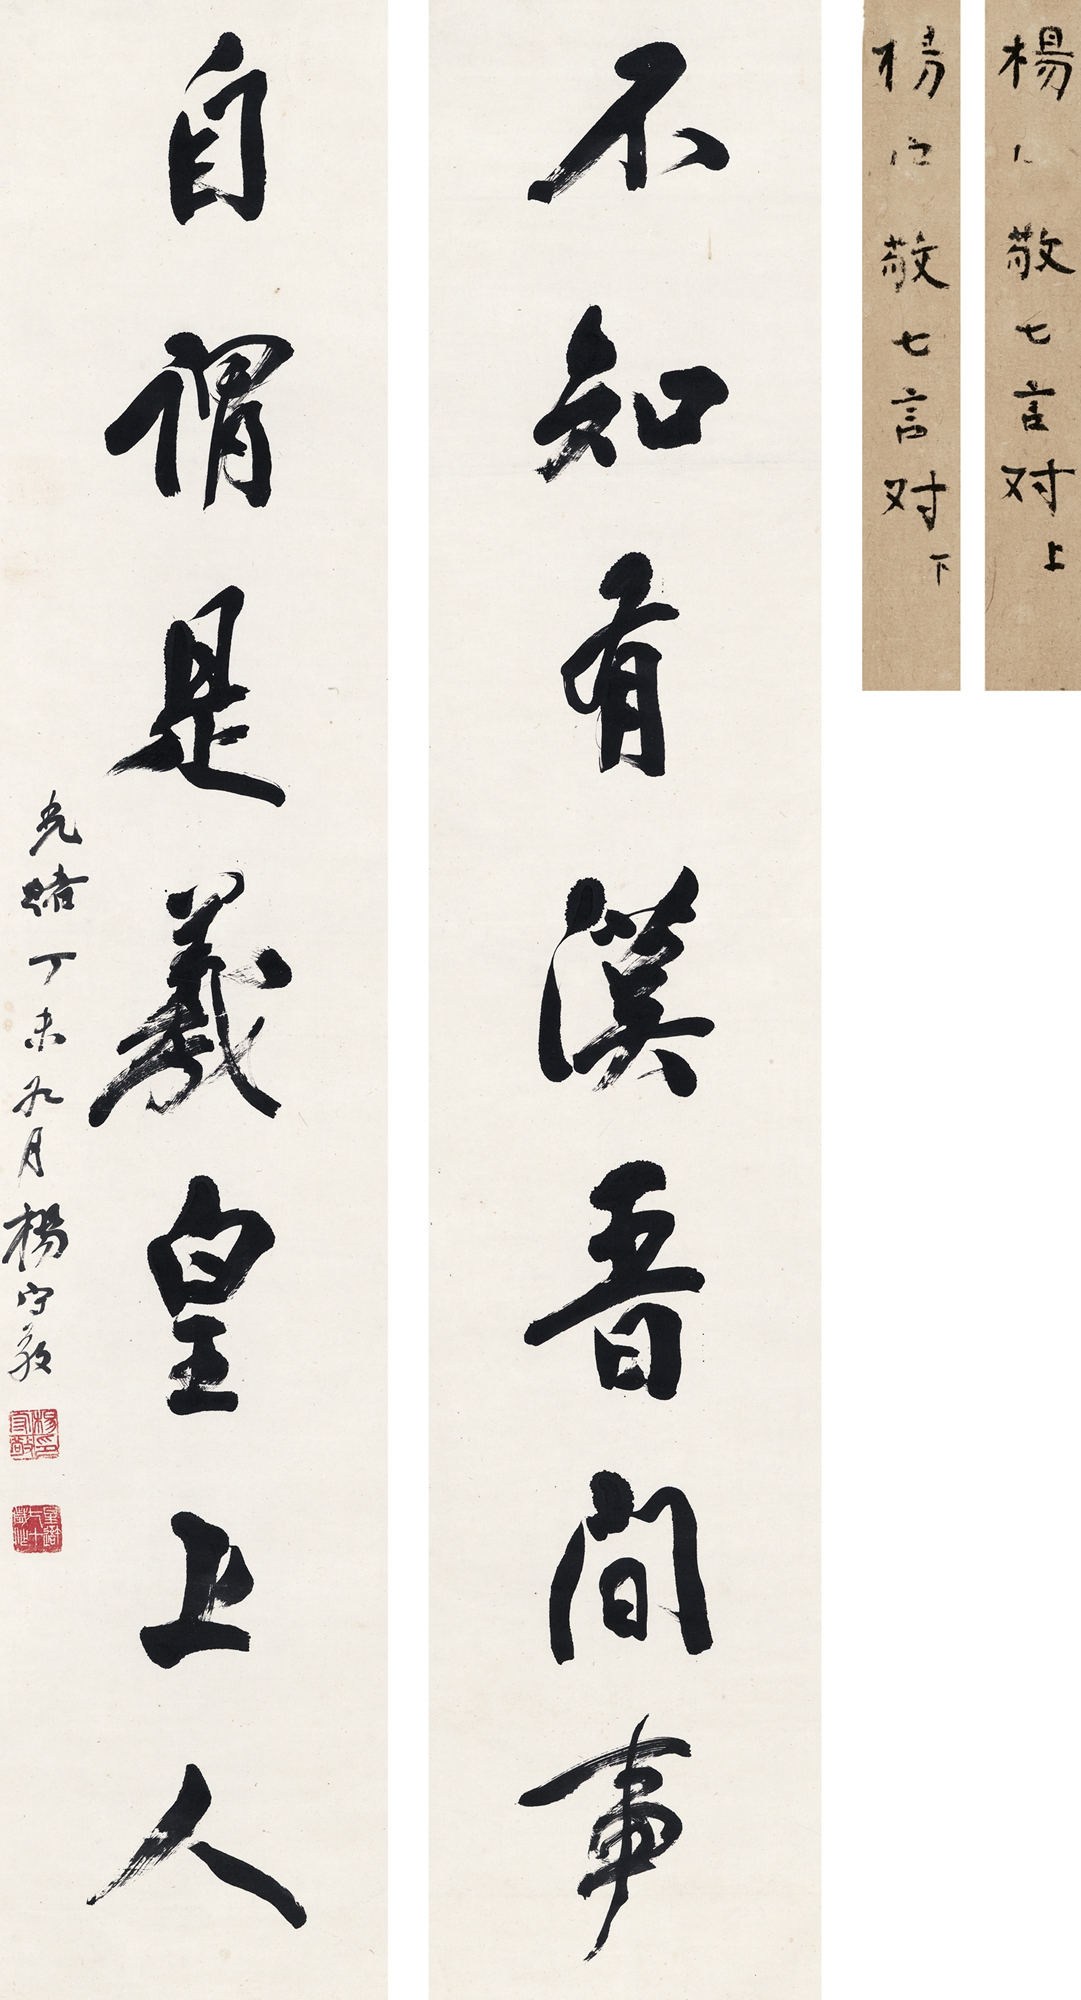 楊敬七言对上
杨敬七言对下
不知有漢晋間事
自謂是羲皇上人
光緒丁未九月楊守敬
楊印守敬